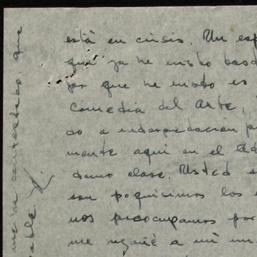 está en crisis. Un esp
que ya he visto bas
por que he visto es
Comedia del Arte,
do a interpretación p
mente aquí en el
demo clase. Usted
son poquísimos los
nos preocupamos por
me a mi un
me ha contestado que